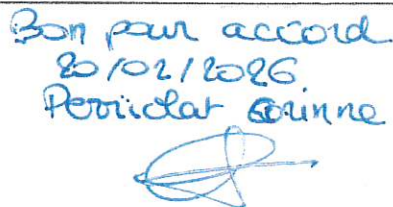 Bon pour accord
20/02/2026
Perriolat Corinne